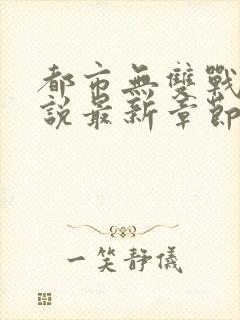 都市無雙戰
說最新章節
一笑靜儀